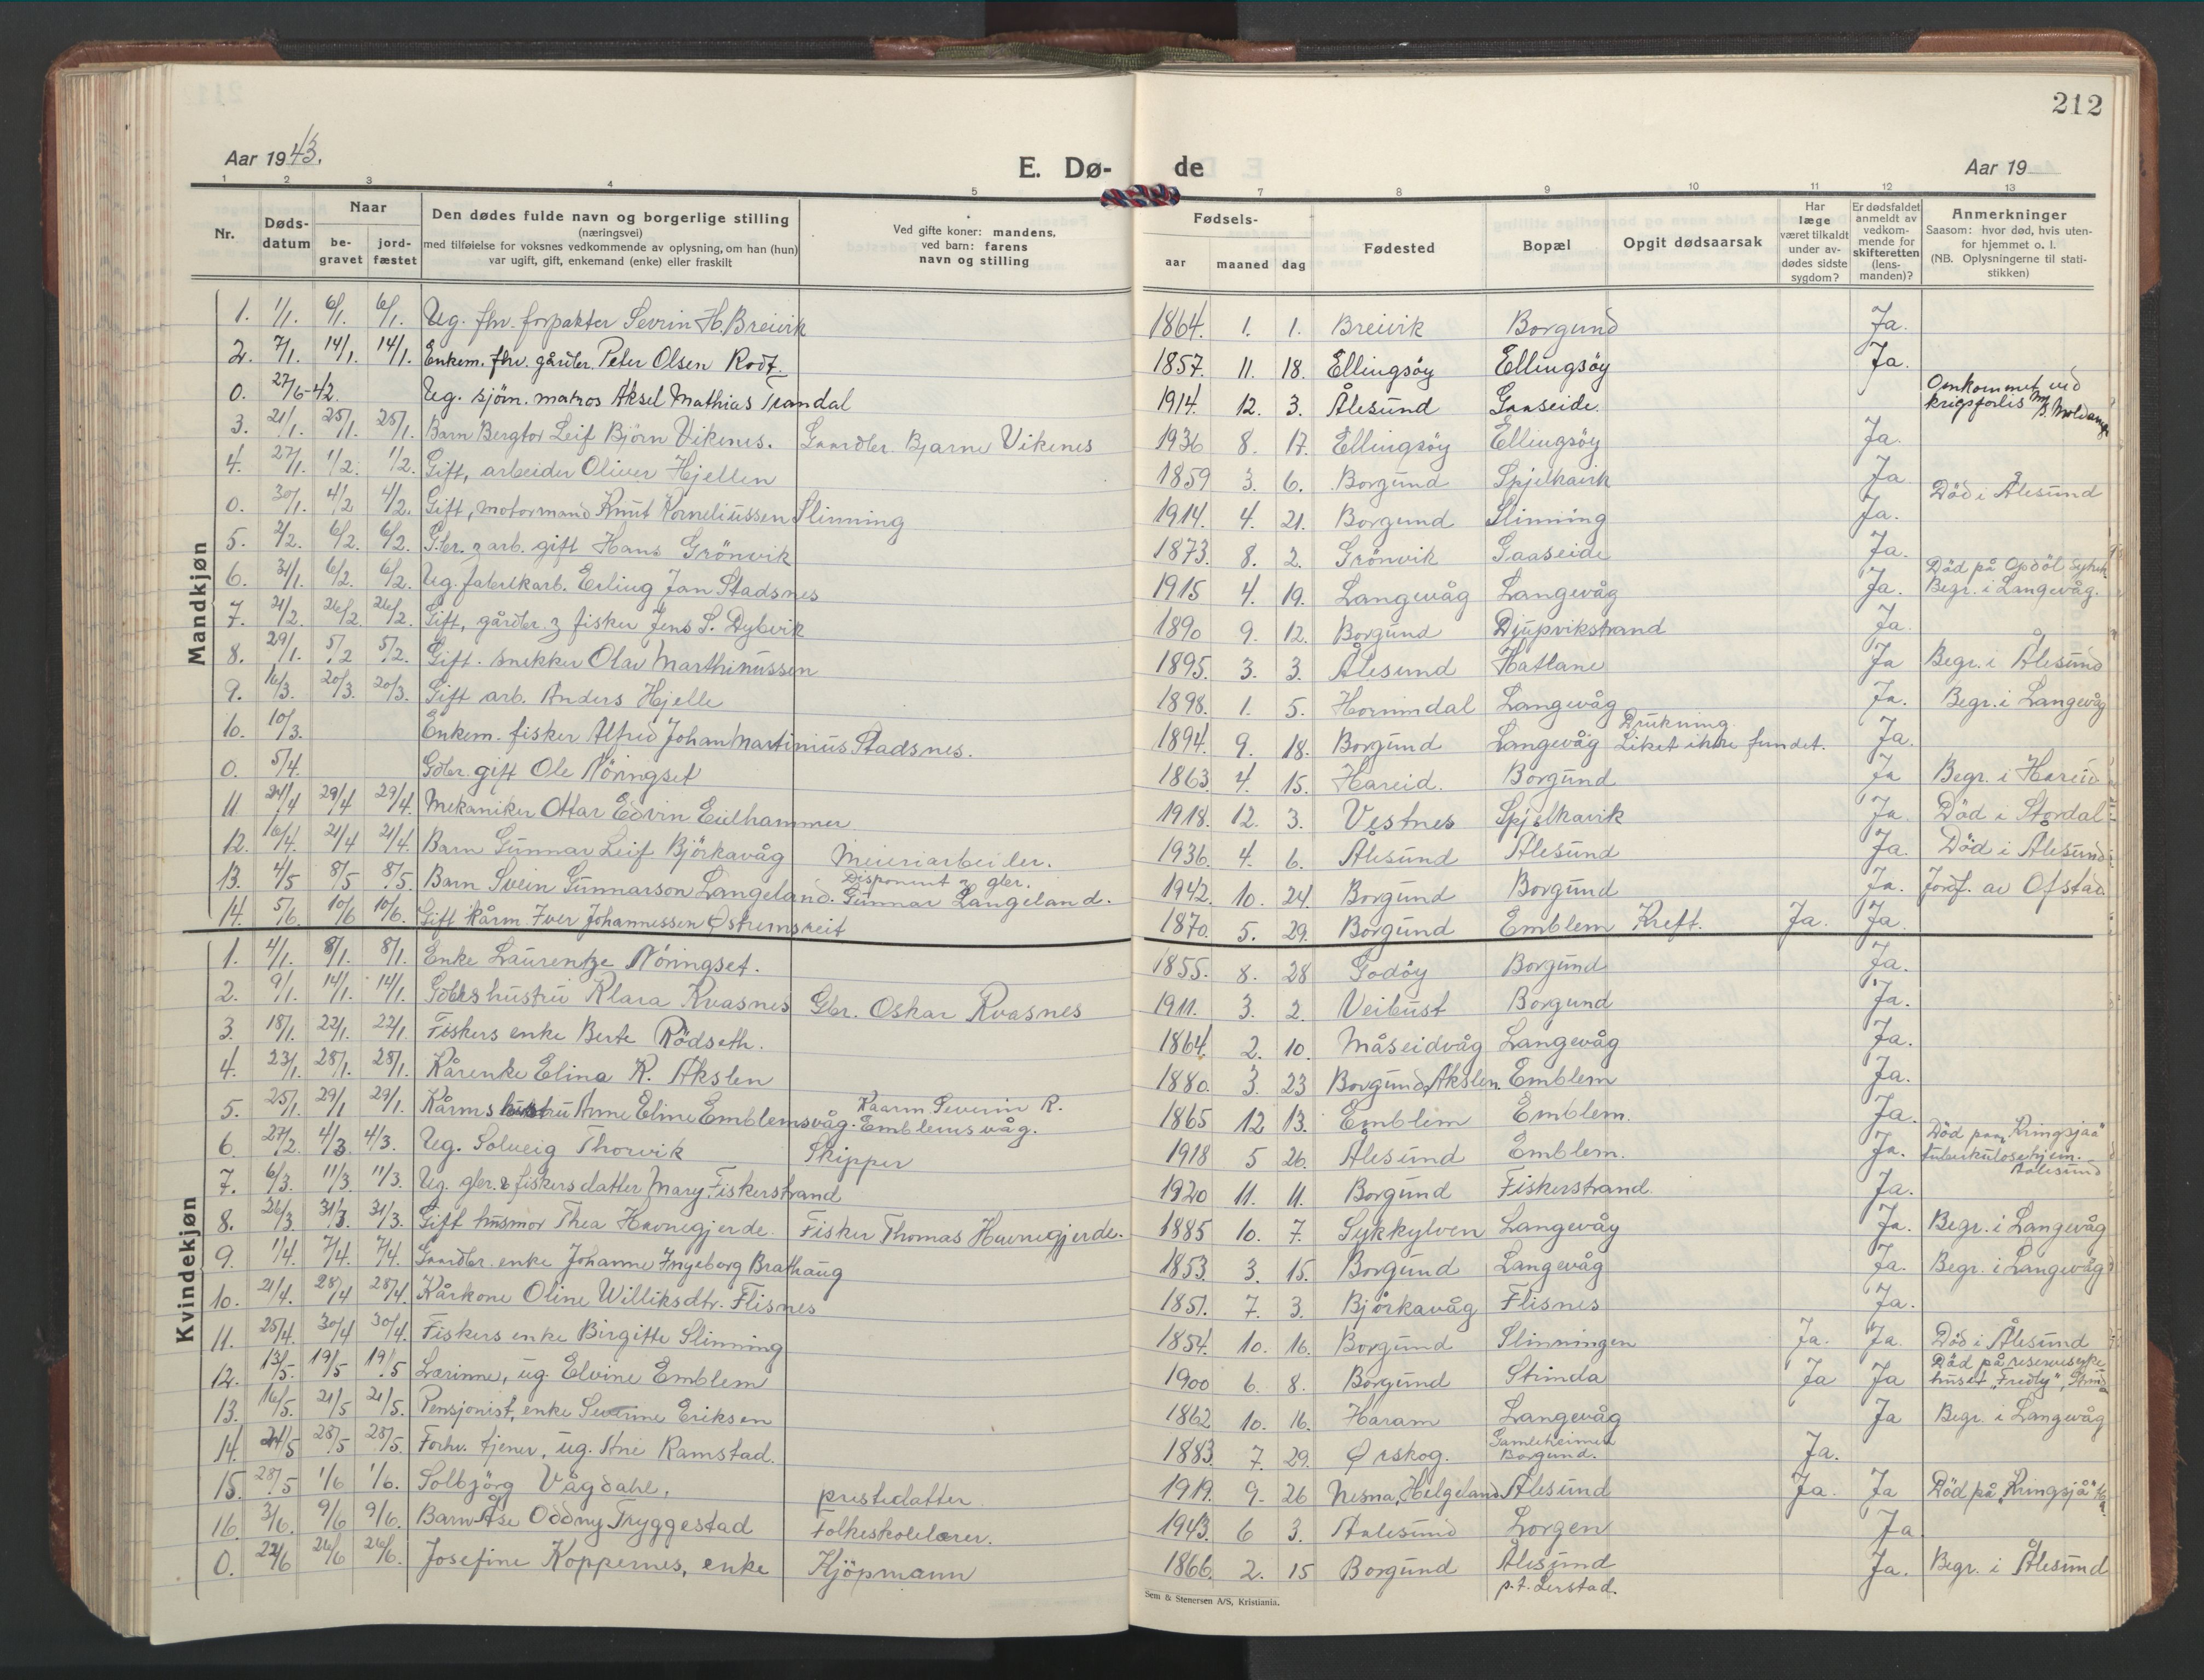 212
Aar 1943.
E. Dø- de
Aar 19
1 2 3 4 5 7 8 9 10 11 12 13
Nr.
Døds-datum
Naar
be-gravet
jord-fæstet
Den dødes fulde navn og borgerlige stilling
(næringsvei)
med tilføielse for voksnes vedkommende av oplysning, om han (hun)
var ugift, gift, enkemand (enke) eller fraskilt
Ved gifte koner: mandens,
ved barn: farens
navn og stilling
Fødsels-
aar maaned dag
Fødested
Bopæl
Opgit dødsaarsak
Har læge været tilkaldt under av-dødes sidste sygdom?
Er dødsfaldet anmeldt av vedkom-mende for skifteretten (lens-manden)?
Anmerkninger
Saasom: hvor død, hvis uten-for hjemmet o. l.
(NB. Oplysningerne til stati-stikken)
Mandkjøn
1. 1/1. 6/1. 6/1. Ug. fhv. forpakter Sevrin H. Breivik 1864. 1. 1. Breivik Borgund Ja.
2. 7/1. 14/1. 14/1. Enkem. fhv. gårdbr. Peter Olsen Rodt. 1857. 11. 18. Ellingsöy Ellingsöy Ja.
0. 27/6-42. Ug. sjöm. matros Aksel Mathias Trandal 1914. 12. 3. Ålesund Gaaseide. Omkommet ved krigsforlis
3. 21/1. 25/1. 25/1. Barn Bergtor Leif Björn Vikenes. Gaardbr. Bjarne Vikenes 1936 8. 17. Ellingsöy Ellingsöy Ja.
4. 27/1. 1/2. 1/2. Gift, arbeider Oliver Hjellen 1859 3. 6. Borgund Spjelkavik Ja
0. 30/1. 4/2 4/2. Gift, motormand Knut Korneliussen Slinning 1914. 4. 21. Borgund Slinning Ja. Död i Ålesund
5. 2/2. 6/2. 6/2. G.br. & arb. gift Hans Grönvik 1873. 8. 2. Grönvik Gaaseide Ja.
6. 31/1. 6/2. 6/2. Ug. fabrikkarb. Erling Jan Stadsnes 1915 4. 19. Langevåg Langevåg Ja. Död på Opdöl sykeh. Begr. i Langevåg.
7. 21/2. 26/2. 26/2. Gift, gårdbr. & fisker Jens S. Dybvik 1890 9. 12. Borgund Djupvikstrand Ja.
8. 29/1. 5/2 5/2. Gift. snekker Olav Marthinussen 1895. 3. 3. Ålesund Hatlane Ja Begr. i Ålesund
9. 16/3. 20/3. 20/3. Gift arb. Anders Hjelle 1898. 1. 5. Hornindal Langevåg Ja. Begr. i Langevåg
10. 10/3. Enkem. fisker Alfred Johan Martinius Stadsnes. 1894. 9. 18. Borgund Langevåg Drukning. Liket ikke fundet. Ja.
0. 5/4. Gdbr. gift Ole Nöringset 1863. 4. 15. Hareid. Borgund Ja Begr. i Hareid
11 24/4 29/4 29/4. Mekaniker Ottar Edvin Eidhammer 1918. 12. 3. Vestnes Spjelkavik Ja Död i Stordal
12. 16/4. 21/4 21/4. Barn Gunnar Leif Björkavåg Meieriarbeider. 1936. 4. 6. Ålesund Ålesund Ja. Död i Ålesund
13. 4/5 8/5 8/5. Barn Svein Gunnarson Langeland. Disponent & gbr. Gunnar Langeland. 1942. 10. 24. Borgund Borgund Ja. Jordf. av Ofstad
14. 5/6. 10/6 10/6. Gift kårm. Iver Johannessen Østremsreit 1870. 5. 29. Borgund Emblem Kreft. Ja. Ja.
Kvindekjøn
1. 4/1. 8/1. 8/1. Enke Laurentze Nöringset. 1855. 8. 28 Godöy Borgund Ja.
2. 9/1. 14/1. 14/1. Gdbrs hustru Klara Kvasnes Gbr. Oskar Kvasnes 1911. 3. 2. Veibust Borgund Ja.
3. 18/1. 22/1. 22/1. Fiskers enke Berte Rödseth. 1864 2. 10. Måseidvåg Langevåg Ja.
4. 23/1. 28/1. 28/1. Kårenke Elina K. Akslen 1880. 3. 23 Borgund, Akslen. Emblem Ja.
5. 25/1. 29/1 29/1. Kårms hustru Anne Eline Emblemsvåg. Kaarm. Severin R. Emblemsvåg. 1865 12 13. Emblem Emblem. Ja.
6. 27/2. 4/3 4/3. Ug. Solveig Thorvik Skipper 1918 5 26. Ålesund Emblem. Ja. Död paa "Kringsjaa" tuberkulosehjem. Aalesund
7. 6/3. 11/3. 11/3. Ug. gbr. & fiskers datter Mary Fiskerstrand 1920 11. 11. Borgund Fiskerstrand. Ja.
8. 26/3. 31/3. 31/3. Gift husmor Thea Havnegjerde. Fisker Thomas Havnegjerde. 1885 10. 7. Sykkylven Langevåg Ja. Begr. i Langevåg
9. 1/4. 7/4. 7/4. Gaardbr. enke Johanne Ingeborg Brathaug 1853. 3. 15. Borgund Langevåg Ja. Begr. i Langevåg
10. 21/4. 28/4 28/4. Kårkone Oline Williksdtr. Flisnes 1851. 7. 3. Björkavåg Flisnes Ja.
11. 25/4. 30/4 30/4. Fiskers enke Birgitte Slinning 1854. 10. 16. Borgund Slinningen Ja. Ja. Död i Ålesund
12. 13/5. 19/5 19/5 Lærinne, ug. Elvine Emblem 1900 6. 8. Borgund Strinda Ja Ja Död på reservesyke huset "Fredly", Strinda
13. 16/5. 21/5 21/5. Pensjonist, enke Severine Eriksen 1862 10. 16. Haram Langevåg Ja Begr. i Langevåg
14. 24/5 28/5 28/5. Forhv. tjener, ug. Ane Ramstad. 1883. 7. 29. Ørskog. Gamleheimen Borgund. Ja.
15. 28/5 1/6 1/6. Solbjörg Vågdahl, prestedatter 1919. 9. 26 Nesna, Helgeland Ålesund Ja. Ja Död på "Kringsjå"
16. 3/6. 9/6 9/6. Barn Åse Oddny Tryggestad Folkeskolelærer. 1943. 6 3. Aalesund Lorgen Ja
0. 22/6 26/6 26/6. Josefine Koppernes, enke Kjöpmann 1866. 2. 15 Borgund Ålesund p.t. Lerstad. Ja. Begr. i Ålesund
Sem & Stenersen A/S, Kristiania.